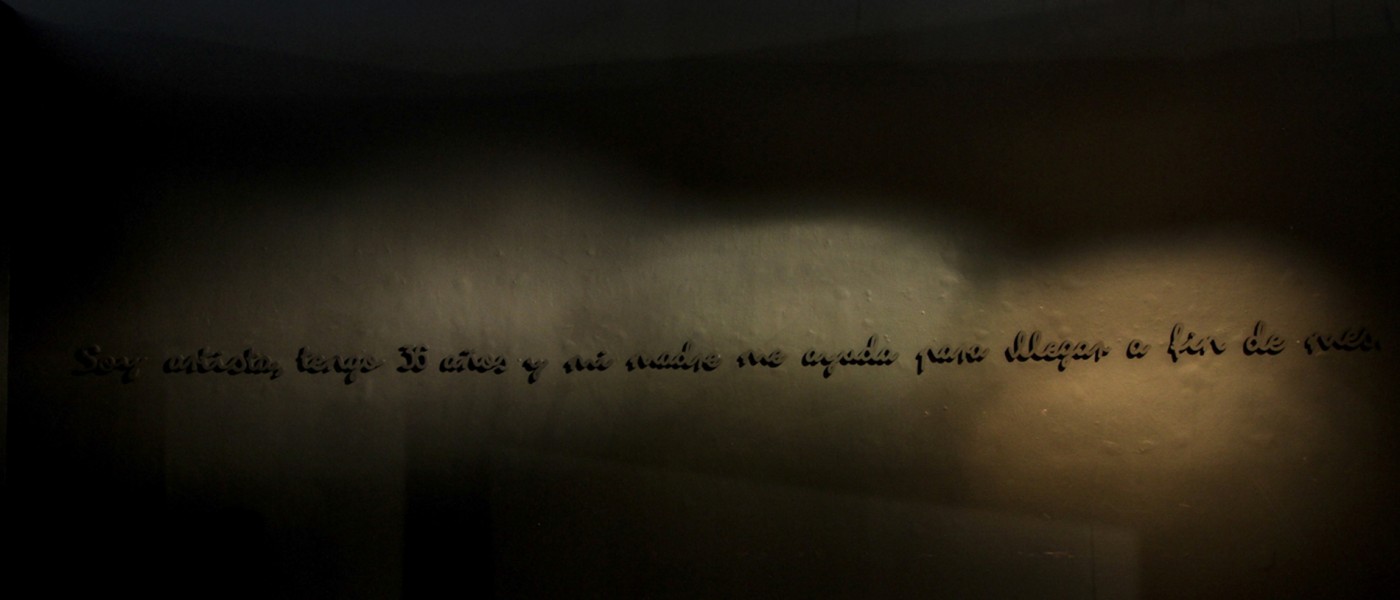 Soy artista, tengo 36 años y mi madre me ayuda para llegar a fin de mes.